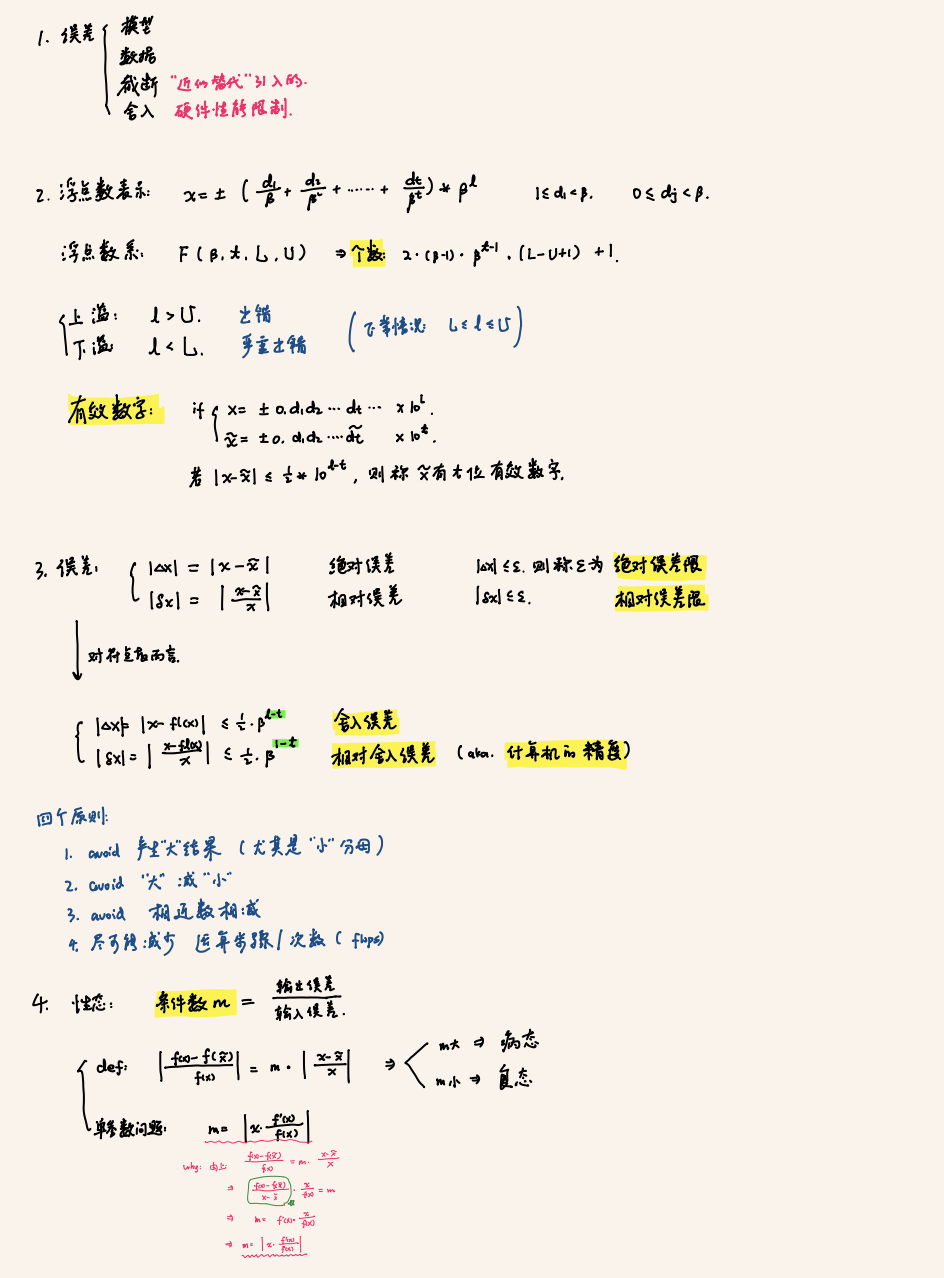 1. 误差 { 模型
数据
截断 "近似替代"引入的.
舍入 硬件性能限制.
2. 浮点数表示: x = ± (d₁/β + d₂/β² + ...... + dt/β^t) * β^l 1≤d₁<β. 0≤dj<β.
浮点数系: F(β, t, L, U) ⇒ 个数: 2·(β-1)·β^(t-1)·(L-U+1) +1.
{ 上溢: l > U. 出错
下溢: l < L. 严重出错 (正常情况: L≤l≤U)
有效数字: if { x = ± 0.d₁d₂ ... dt ... ×10^l.
x̃ = ±0.d₁d₂ ... d̃t ×10^t.
若 |x-x̃| ≤ ½ * 10^(l-t), 则称 x̃有t位有效数字.
3. 误差: { |Δx| = |x-x̃| 绝对误差 |Δx| ≤ε. 则称ε为 绝对误差限
|δx| = |(x-x̃)/x| 相对误差 |δx| ≤ε. 相对误差限
对浮点数而言.
{ |Δx|= |x-fl(x)| ≤ ½·β^(l-t) 舍入误差
|δx| = |(x-fl(x))/x| ≤ ½·β^(1-t) 相对舍入误差 (aka. 计算机的精度)
四个原则:
1. avoid 产生"大"结果 (尤其是"小"分母)
2. avoid "大"减"小"
3. avoid 相近数相减
4. 尽可能减少 运算步骤/次数 (flops)
4. 性态: 条件数 m = 输出误差/输入误差.
{ def: |(f(x)-f(x̃))/f(x)| = m·|(x-x̃)/x| ⇒ < m大 ⇒ 病态
m小 ⇒ 良态
单参数问题: m= |x·f'(x)/f(x)|
why: 由上 (f(x)-f(x̃))/f(x) = m·(x-x̃)/x
⇒ (f(x)-f(x̃))/(x-x̃) · x/f(x) = m
⇒ m= f'(x)·x/f(x)
⇒ m= |x·f'(x)/f(x)|